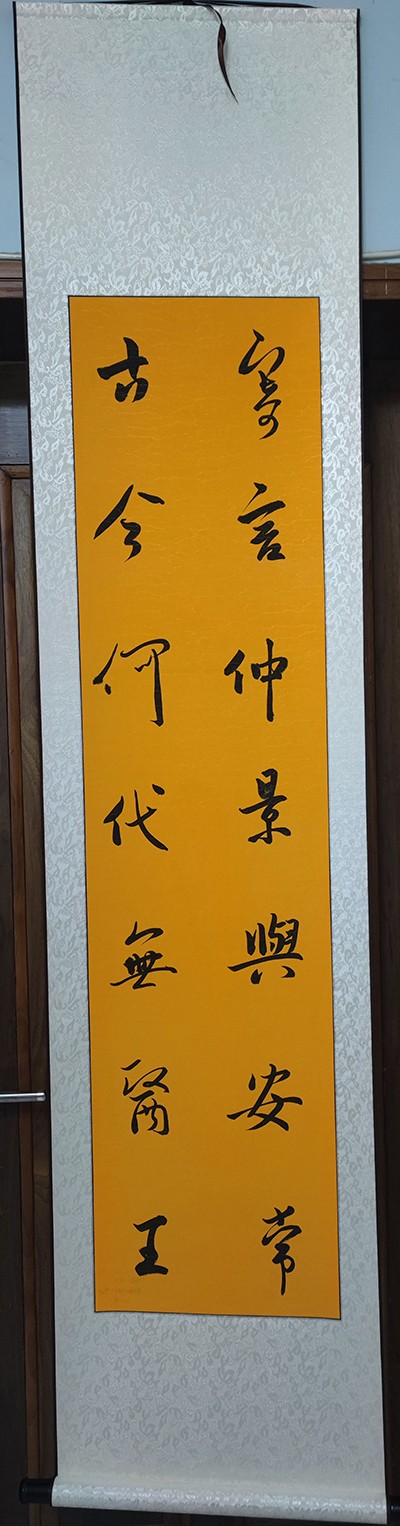 寄言仲景與安常
古今何代無醫王